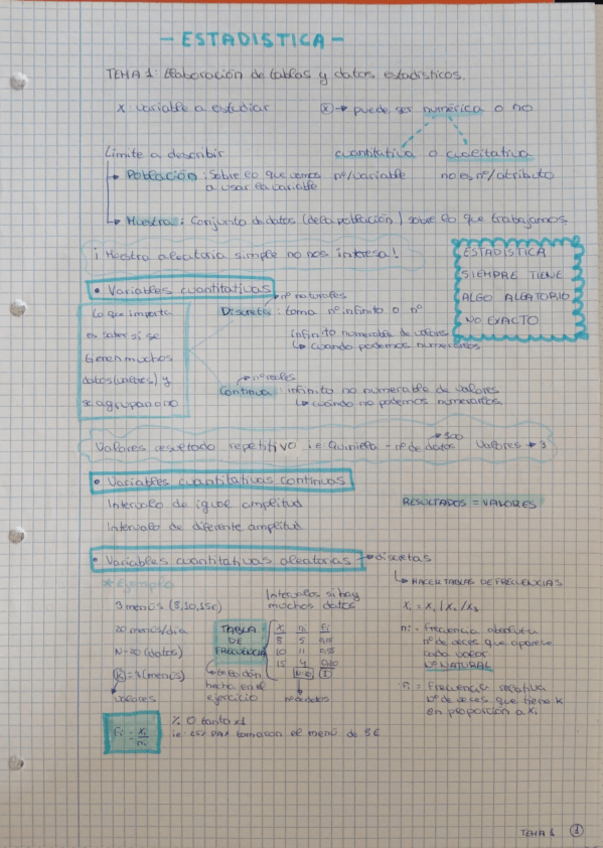 - ESTADISTICA -
TEMA 1: Elaboración de tablas y datos estadísticos.
X variable a estudiar
Ⓧ → puede ser numérica o no
Limite a describir
cuantitativa o cualitativa
→ Población: Sobre lo que vamos a usar la variable
nº/variable
no es nº/atributo
→ Muestra: Conjunto de datos (de la población) sobre lo que trabajamos
¡Muestra aleatoria simple no nos interesa!
ESTADISTICA
SIEMPRE TIENE
ALGO ALEATORIO
NO EXACTO
• Variables cuantitativas
Lo que importa
es saber si se
tienen muchos
datos (valores) y
se agrupan o no
→ nº naturales
Discreta: toma nº infinito o nº
infinito numerable de valores
↳ cuando podemos numerarlos
→ nº reales
Continua: infinito no numerable de valores
↳ cuando no podemos numerarlos
Valores resultado repetitivo i.e Quiniela - nº de datos → 300 valores → 3
• Variables cuantitativas continuas
Intervalo de igual amplitud
RESULTADOS = VALORES
Intervalo de diferente amplitud
• Variables cuantitativas aleatorias → discretas
↳ HACER TABLAS DE FRECUENCIAS
* Ejemplo
Intervalos si hay
muchos datos
3 menús (8,10,15€)
20 menús/día
N=20 (datos)
(menús)
valores
TABLA
DE
FRECUENCIA
hecha en el
ejercicio
Xi ni fi
8 5
10 11
15 4
nº de datos
ni = frecuencia absoluta
nº de veces que aparece
cada valor
Nº NATURAL
fi = Frecuencia relativa
Nº de veces que tiene
en proporción a Xi
% O tanto x1
tomaron el menú de 8€
TEMA 1 ①